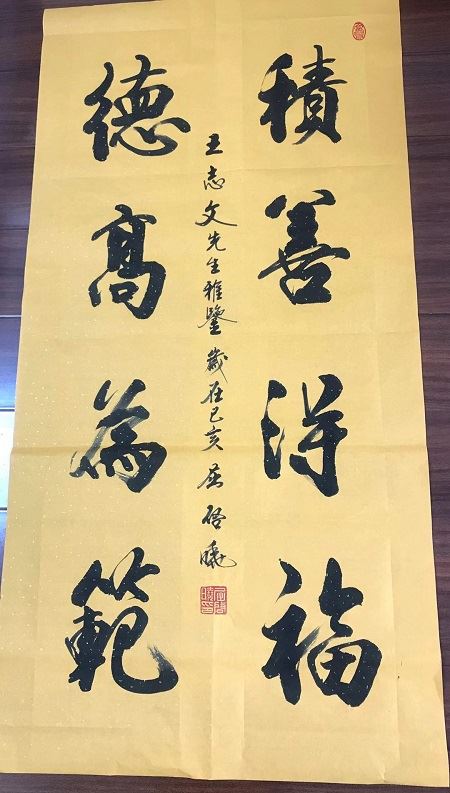 積善得福
王志文先生雅鑒歲在己亥 屈啓曉
德高為範